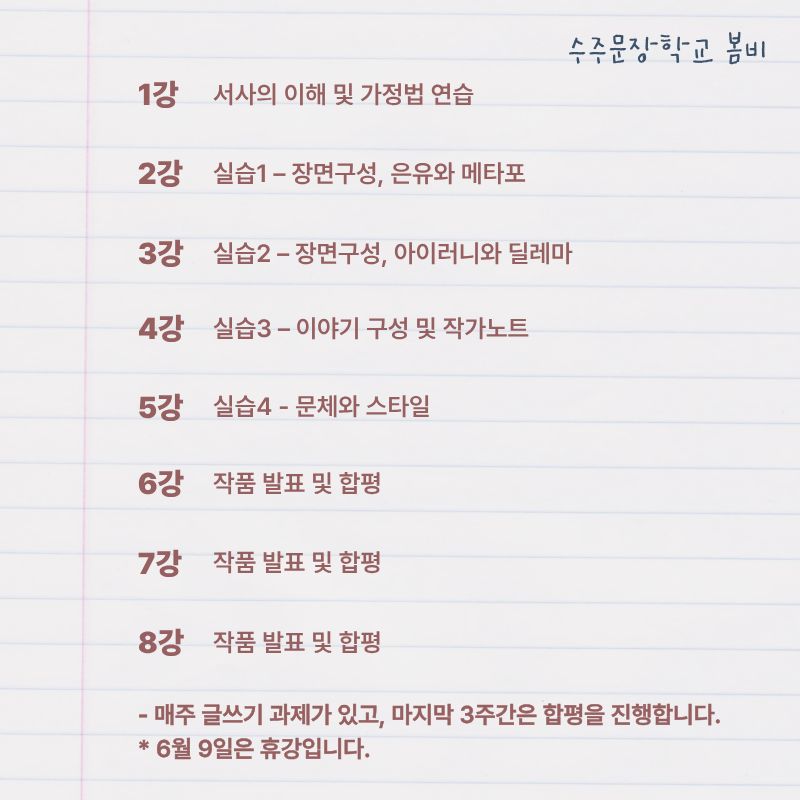 수주문장학교 봄비
1강 서사의 이해 및 가정법 연습
2강 실습1 – 장면구성, 은유와 메타포
3강 실습2 – 장면구성, 아이러니와 딜레마
4강 실습3 – 이야기 구성 및 작가노트
5강 실습4 - 문체와 스타일
6강 작품 발표 및 합평
7강 작품 발표 및 합평
8강 작품 발표 및 합평
- 매주 글쓰기 과제가 있고, 마지막 3주간은 합평을 진행합니다.
* 6월 9일은 휴강입니다.